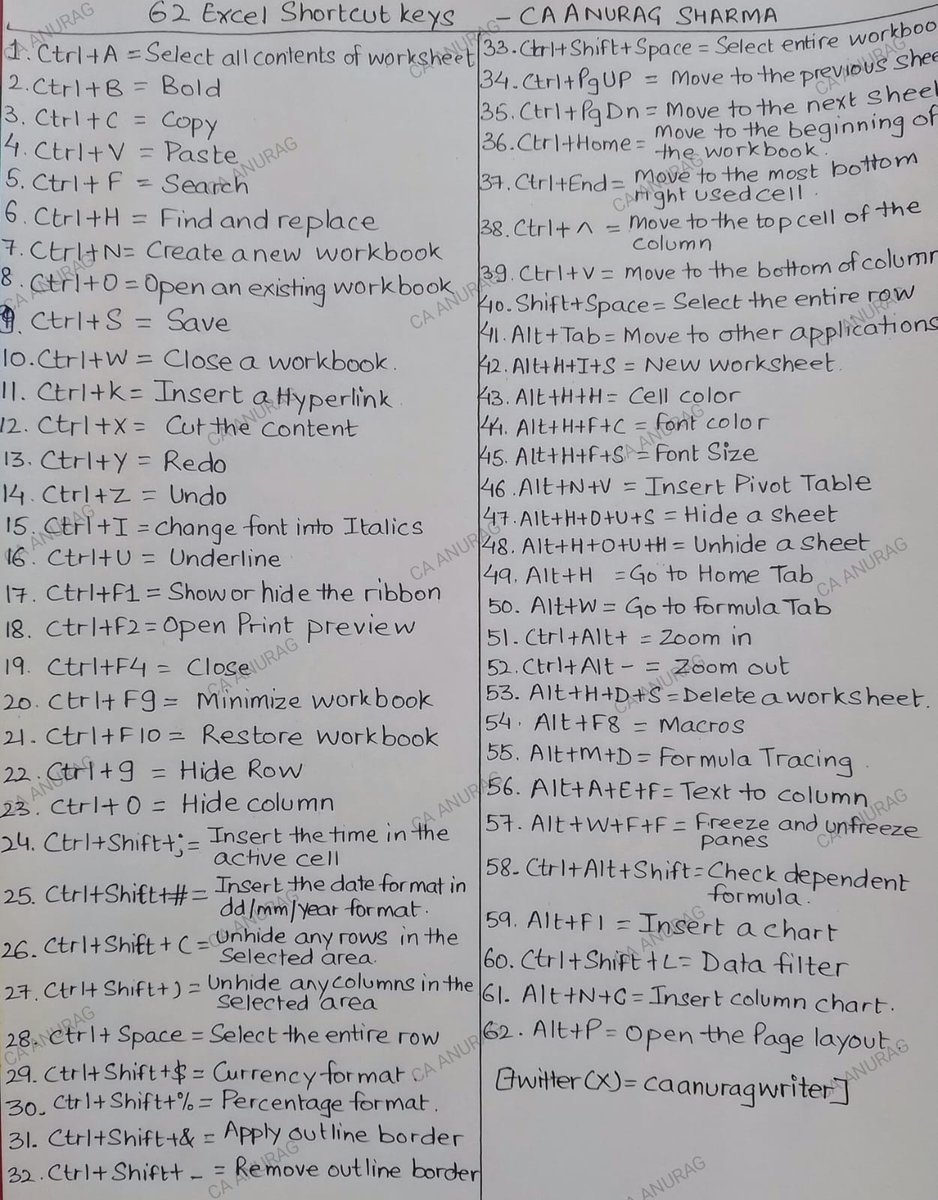 62 Excel Shortcut keys - CA ANURAG SHARMA
1. Ctrl+A = Select all contents of worksheet
2. Ctrl+B = Bold
3. Ctrl+C = Copy
4. Ctrl+V = Paste
5. Ctrl+F = Search
6. Ctrl+H = Find and replace
7. Ctrl+N= Create a new workbook
8. Ctrl+O = Open an existing workbook
9. Ctrl+S = Save
10. Ctrl+W = Close a workbook.
11. Ctrl+k = Insert a Hyperlink
12. Ctrl+X = Cut the content
13. Ctrl+Y = Redo
14. Ctrl+Z = Undo
15. Ctrl+I = change font into Italics
16. Ctrl+U = Underline
17. Ctrl+F1 = Show or hide the ribbon
18. Ctrl+F2 = Open Print preview
19. Ctrl+F4 = Close
20. Ctrl+F9 = Minimize workbook
21. Ctrl+F10 = Restore workbook
22. Ctrl+9 = Hide Row
23. Ctrl+0 = Hide column
24. Ctrl+Shift+;= Insert the time in the
active cell
25. Ctrl+Shift+#= Insert the date format in
dd/mm/year format.
26. Ctrl+Shift+C = Unhide any rows in the
Selected area.
27. Ctrl+Shift+) = Unhide any columns in the
Selected area
28. Ctrl+Space = Select the entire row
29. Ctrl+Shift+$ = Currency format.
30. Ctrl+Shift+% = Percentage format.
31. Ctrl+Shift+& = Apply outline border
32. Ctrl+Shift+_ = Remove outline border
33. Ctrl+Shift+Space = Select entire workboo
34. Ctrl+PgUP = Move to the previous shee
35. Ctrl+PgDn = Move to the next sheet
36. Ctrl+Home = Move to the beginning of
the workbook.
37. Ctrl+End = Move to the most bottom
right used cell.
38. Ctrl+^ = Move to the top cell of the
column
39. Ctrl+v = move to the bottom of column
40. Shift+Space = Select the entire row
41. Alt+Tab = Move to other applications
42. Alt+H+I+S = New worksheet.
43. Alt+H+H = Cell color
44. Alt+H+F+C = font color
45. Alt+H+F+S = Font Size
46. Alt+N+V = Insert Pivot Table
47. Alt+H+O+U+S = Hide a sheet
48. Alt+H+O+U+H = Unhide a sheet
49. Alt+H = Go to Home Tab
50. Alt+W = Go to formula Tab
51. Ctrl+Alt+ = Zoom in
52. Ctrl+Alt- = Zoom out
53. Alt+H+D+S = Delete a worksheet.
54. Alt+F8 = Macros
55. Alt+M+D = Formula Tracing
56. Alt+A+E+F = Text to column
57. Alt+W+F+F = Freeze and unfreeze
panes
58. Ctrl+Alt+Shift = Check dependent
formula.
59. Alt+F1 = Insert a chart
60. Ctrl+Shift+L = Data filter
61. Alt+N+C = Insert column chart.
62. Alt+P = Open the Page layout.
[Twitter (X) = caanuragwriter]
CA ANURAG